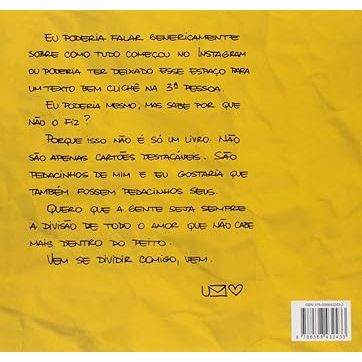 Eu poderia falar genericamente
sobre como tudo começou no Instagram
ou poderia ter deixado esse espaço para
um texto bem clichê na 3ª pessoa.
Eu poderia mesmo, mas sabe por que
não o fiz?
Porque isso não é só um livro. Não
são apenas cartões destacáveis. São
pedacinhos de mim e eu gostaria que
também fossem pedacinhos seus.
Quero que a gente seja sempre
a divisão de todo o amor que não cabe
mais dentro do peito.
Vem se dividir comigo, vem.